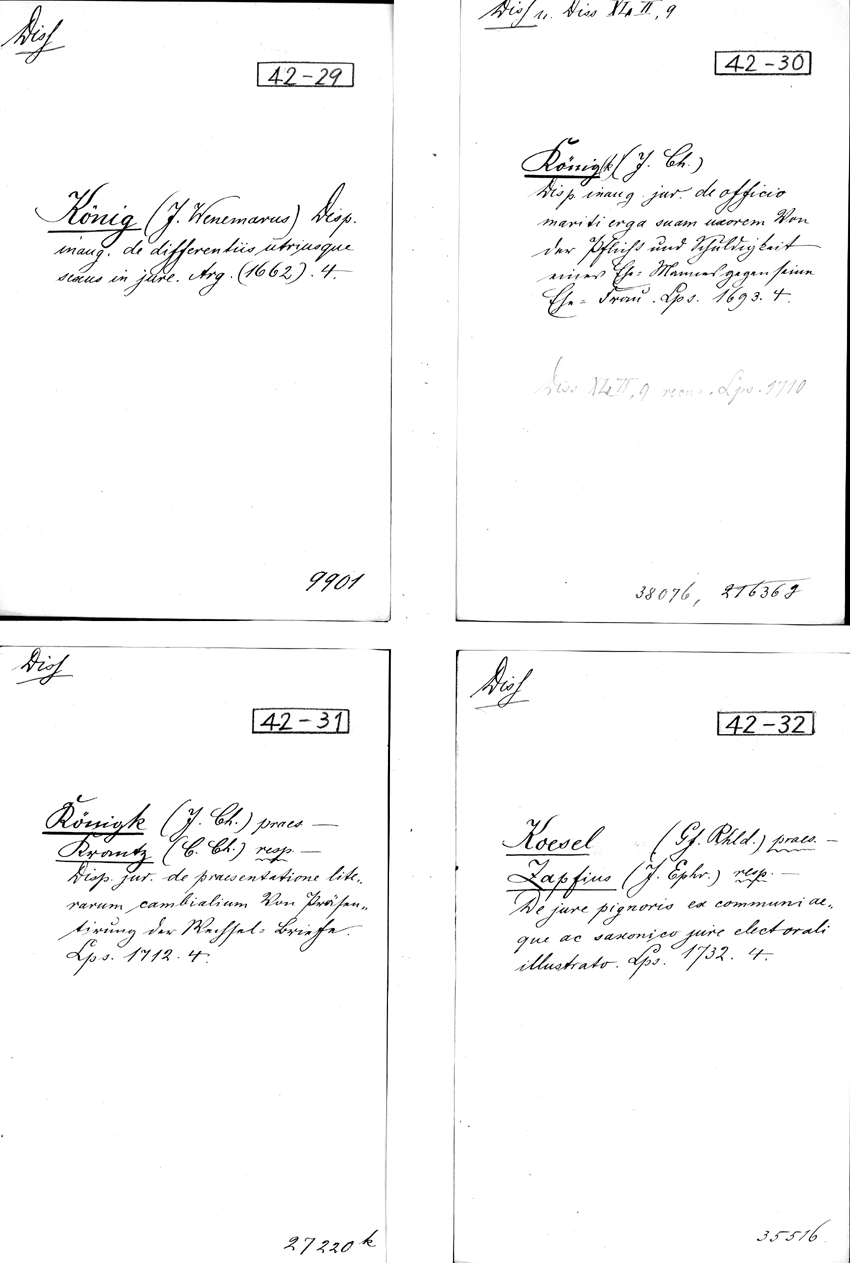 Diss
42-29
König (J. Wenemarus) Disp.
inaug. de differentiis utriusque
sexus in jure. Arg. (1662). 4.
9901
Diss u. Diss XLII, 9
42-30
König(k) (J. Ch.)
Disp. inaug. jur. de officio
mariti erga suam uxorem Von
der Pflicht und Schuldigkeit
eines Ehe= Mannes gegen seine
Ehe= Frau. Lps. 1693. 4.
Diss XLII, 9 Lps. 1710
38076, 21636g
Diss
42-31
Königk (J. Ch.) praes —
Krantz (C. Ch.) resp. —
Disp. jur. de praesentatione lite-
rarum cambialium Von Präsen-
tirung der Wechsel= Briefe.
Lps. 1712. 4.
27220k
Diss
42-32
Koesel (Gf. Rhld.) praes. —
Zapfius (J. Ephr.) resp. —
De jure pignoris ex communi ae-
que ac saxonico jure electorali
illustrato. Lps. 1732. 4.
35516